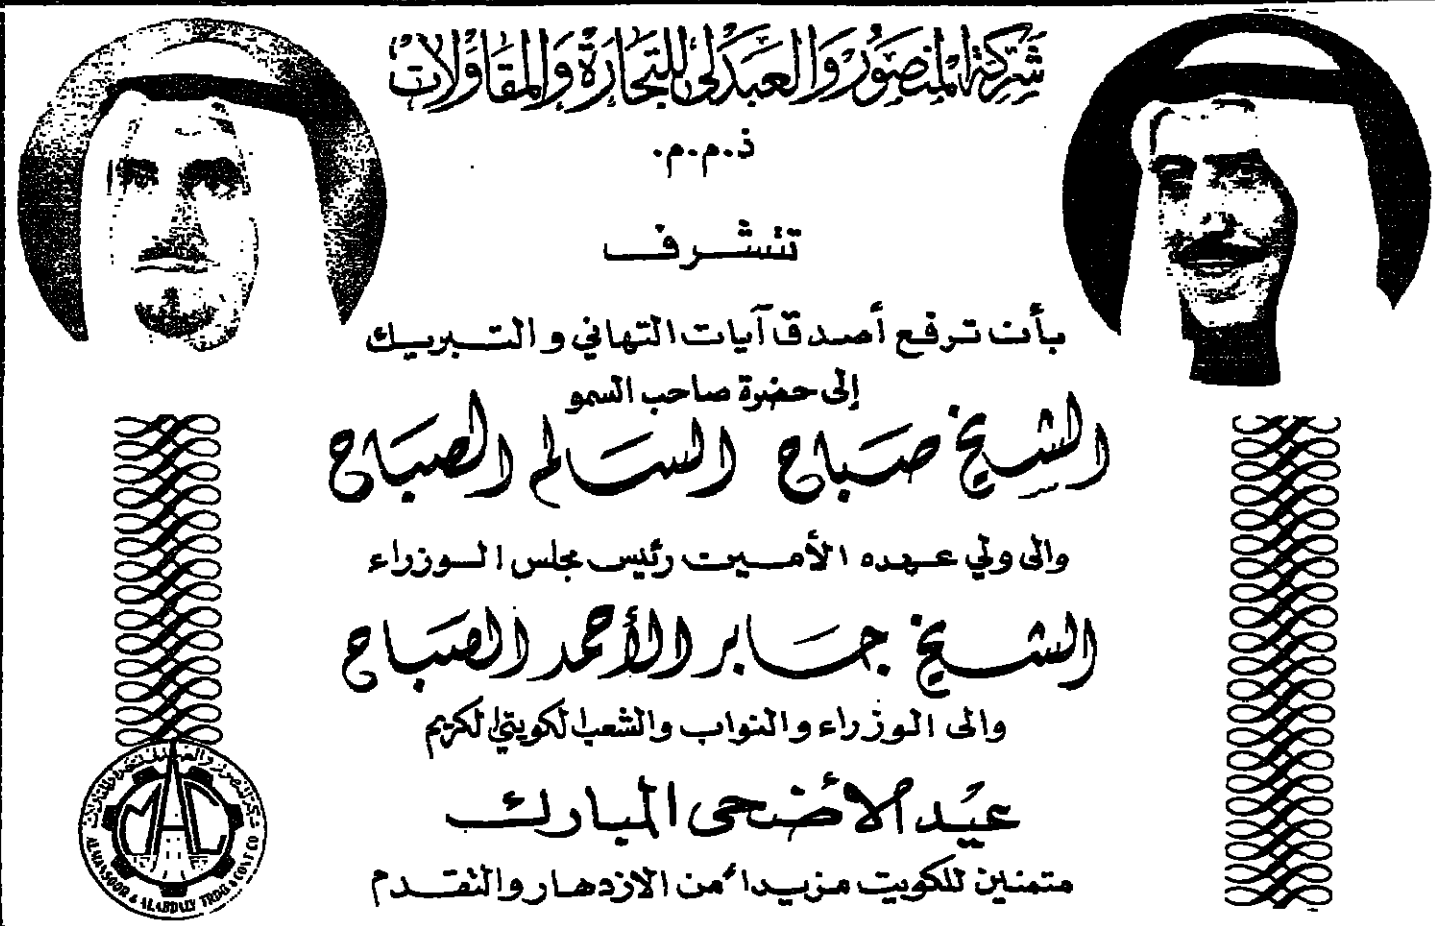 شركة المنصور والعبدلي للتجارة والمقاولات
ذ.م.م.
تتشرف
بأن ترفع أصدق آيات التهاني والتبريك
إلى حضرة صاحب السمو
الشيخ صباح السالم الصباح
والى ولي عهده الأمين رئيس مجلس الوزراء
الشيخ جابر الأحمد الصباح
والى الوزراء والنواب والشعب الكويتي الكريم
عيد الأضحى المبارك
متمنين للكويت مزيداً من الازدهار والتقدم
شركة المنصور والعبدلي للتجارة والمقاولات
MAC
ALMANSOOR & ALABDALY TRDG & CONT CO